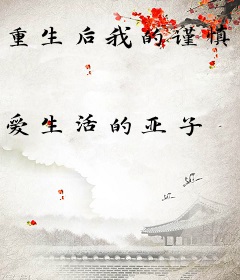 重生后我的谨慎
爱生活的亚子